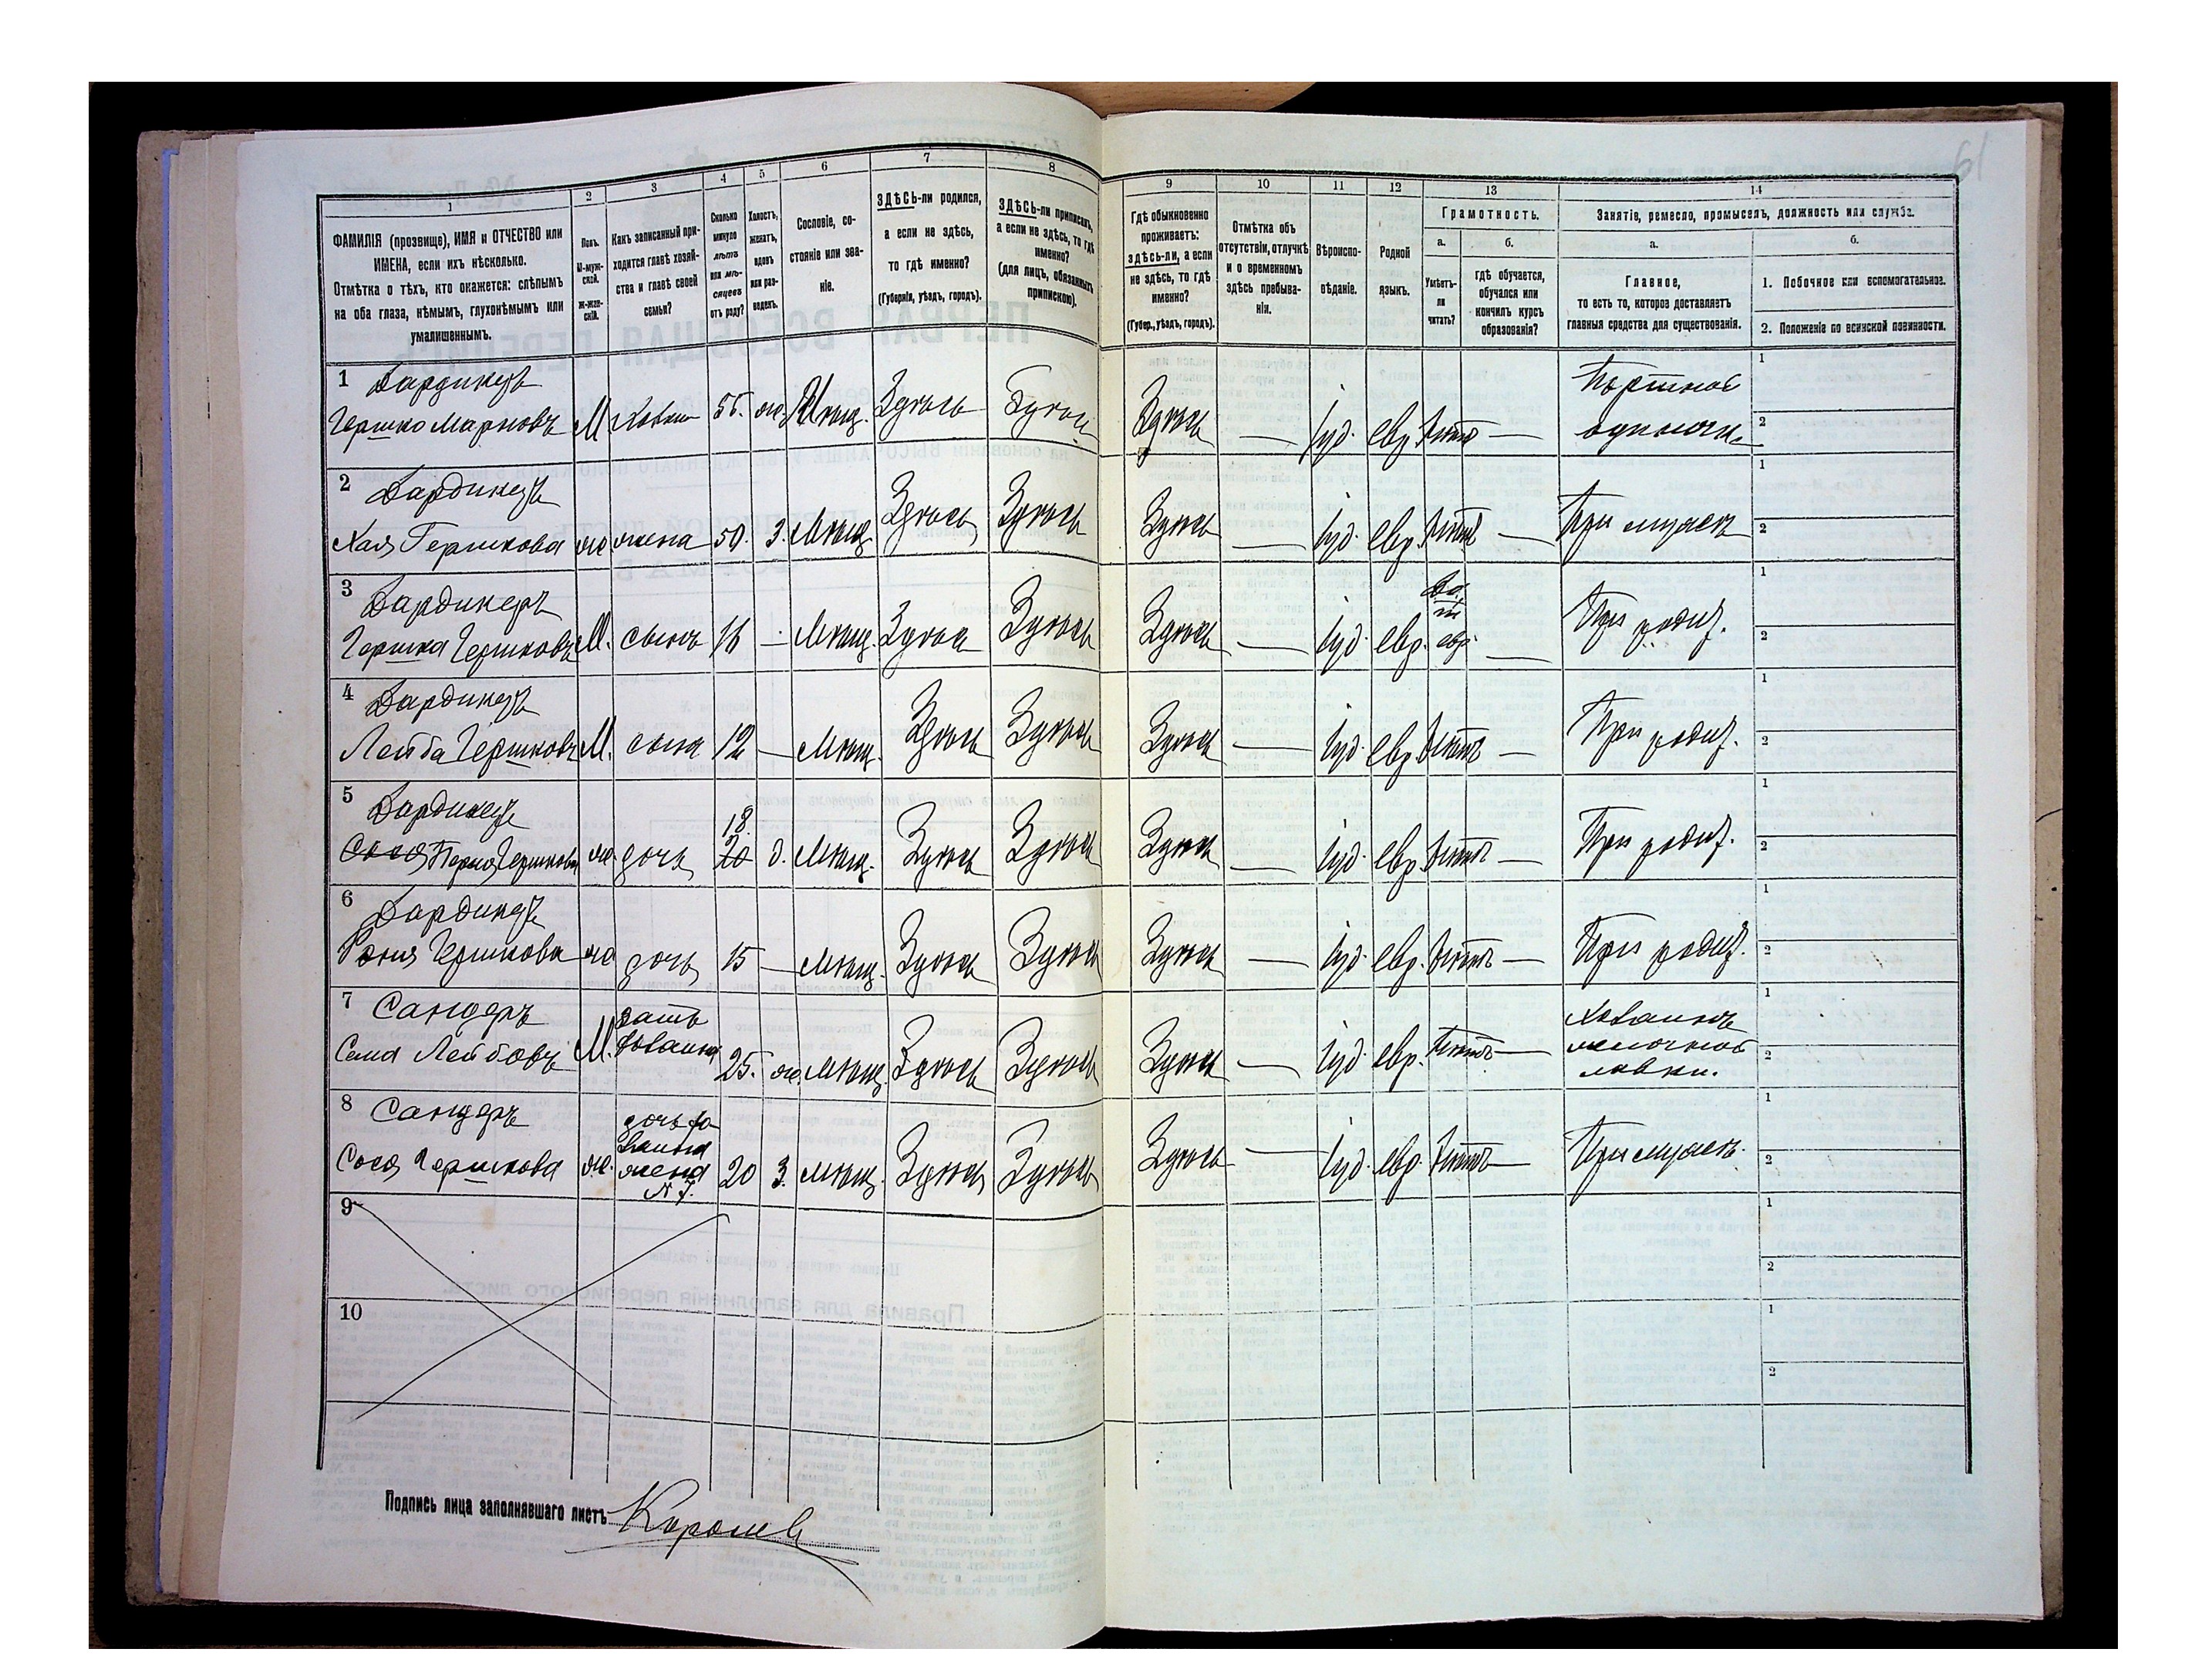 1
2
3
4
5
6
7
8
ФАМИЛІЯ (прозвище), ИМЯ и ОТЧЕСТВО или
ИМЕНА, если ихъ нѣсколько.
Отмѣтка о тѣхъ, кто окажется: слѣпымъ
на оба глаза, нѣмымъ, глухонѣмымъ или
умалишеннымъ.
Полъ.
М-муж-
ской.
Ж-жен-
скій.
Какъ записанный при-
ходится главѣ хозяй-
ства и главѣ своей
семьи?
Сколько
минуло
лѣтъ
или мѣ-
сяцевъ
отъ роду?
Холостъ,
женатъ,
вдовъ
или раз-
веденъ.
Сословіе, со-
стояніе или зва-
ніе.
ЗДѢСЬ-ли родился,
а если не здѣсь,
то гдѣ именно?
(Губернія, уѣздъ, городъ).
ЗДѢСЬ-ли приписанъ,
а если не здѣсь, то гдѣ
именно?
(для лицъ, обязанныхъ
припискою).
9
10
11
12
13
14
Гдѣ обыкновенно
проживаетъ:
здѣсь-ли, а если
не здѣсь, то гдѣ
именно?
(Губер., уѣздъ, городъ).
Отмѣтка объ
отсутствіи, отлучкѣ
и о временномъ
здѣсь пребыва-
ніи.
Вѣроиспо-
вѣданіе.
Родной
языкъ.
Грамотность.
а.
б.
Умѣетъ-
ли
читать?
гдѣ обучается,
обучался или
кончилъ курсъ
образованія?
Занятіе, ремесло, промыселъ, должность или служба.
а.
б.
Главное,
то есть то, которое доставляетъ
главныя средства для существованія.
1. Побочное или вспомогательное.
2. Положеніе по воинской повинности.
1 Бардикеръ
Гершко Марковъ М хозяин 55. ж. Мѣщ. Здѣсь Здѣсь Здѣсь — іуд. евр. нѣтъ — Портной одиночк. 1 2
2 Бардикеръ
Хая Гершкова ж жена 50. З. Мѣщ. Здѣсь Здѣсь Здѣсь — іуд. евр. нѣтъ — При мужѣ 1 2
3 Бардикеръ
Гершка Гершковъ М. сынъ 16 — Мѣщ. Здѣсь Здѣсь Здѣсь — іуд. евр. евр. — При родит. 1 2
4 Бардикеръ
Лейба Гершковъ М. сынъ 12 — Мѣщ. Здѣсь Здѣсь Здѣсь — іуд. евр. нѣтъ — При родит. 1 2
5 Бардикеръ
Сося Перля Гершкова ж. дочь 18 20 д. Мѣщ. Здѣсь Здѣсь Здѣсь — іуд. евр. нѣтъ — При родит. 1 2
6 Бардикеръ
Гершкова ж дочь 15 — Мѣщ. Здѣсь Здѣсь Здѣсь — іуд. евр. нѣтъ — При родит. 1 2
7 Сандеръ
Лейбовъ М. зять хозяина 25. ж. Мѣщ. Здѣсь Здѣсь Здѣсь — іуд. евр. нѣтъ — Хозяинъ мелочной лавки. 1 2
8 Сандеръ
Сося Гершкова ж. дочь хозяина жена N 7. 20 З. Мѣщ. Здѣсь Здѣсь Здѣсь — іуд. евр. нѣтъ — При мужѣ. 1 2
9
1
2
10
1
2
Подпись лица заполнявшаго листъ